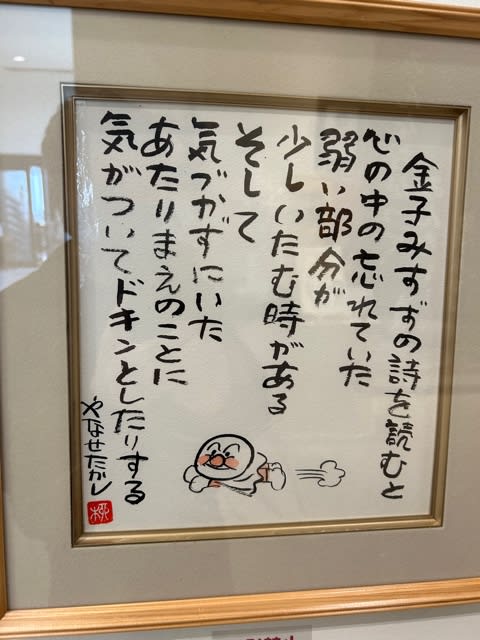 金子みすずの詩を読むと
心の中の忘れていた
弱い部分が
少しいたむ時がある
そして
気づかずにいた
あたりまえのことに
気がついてドキンとしたりする
やなせたかし